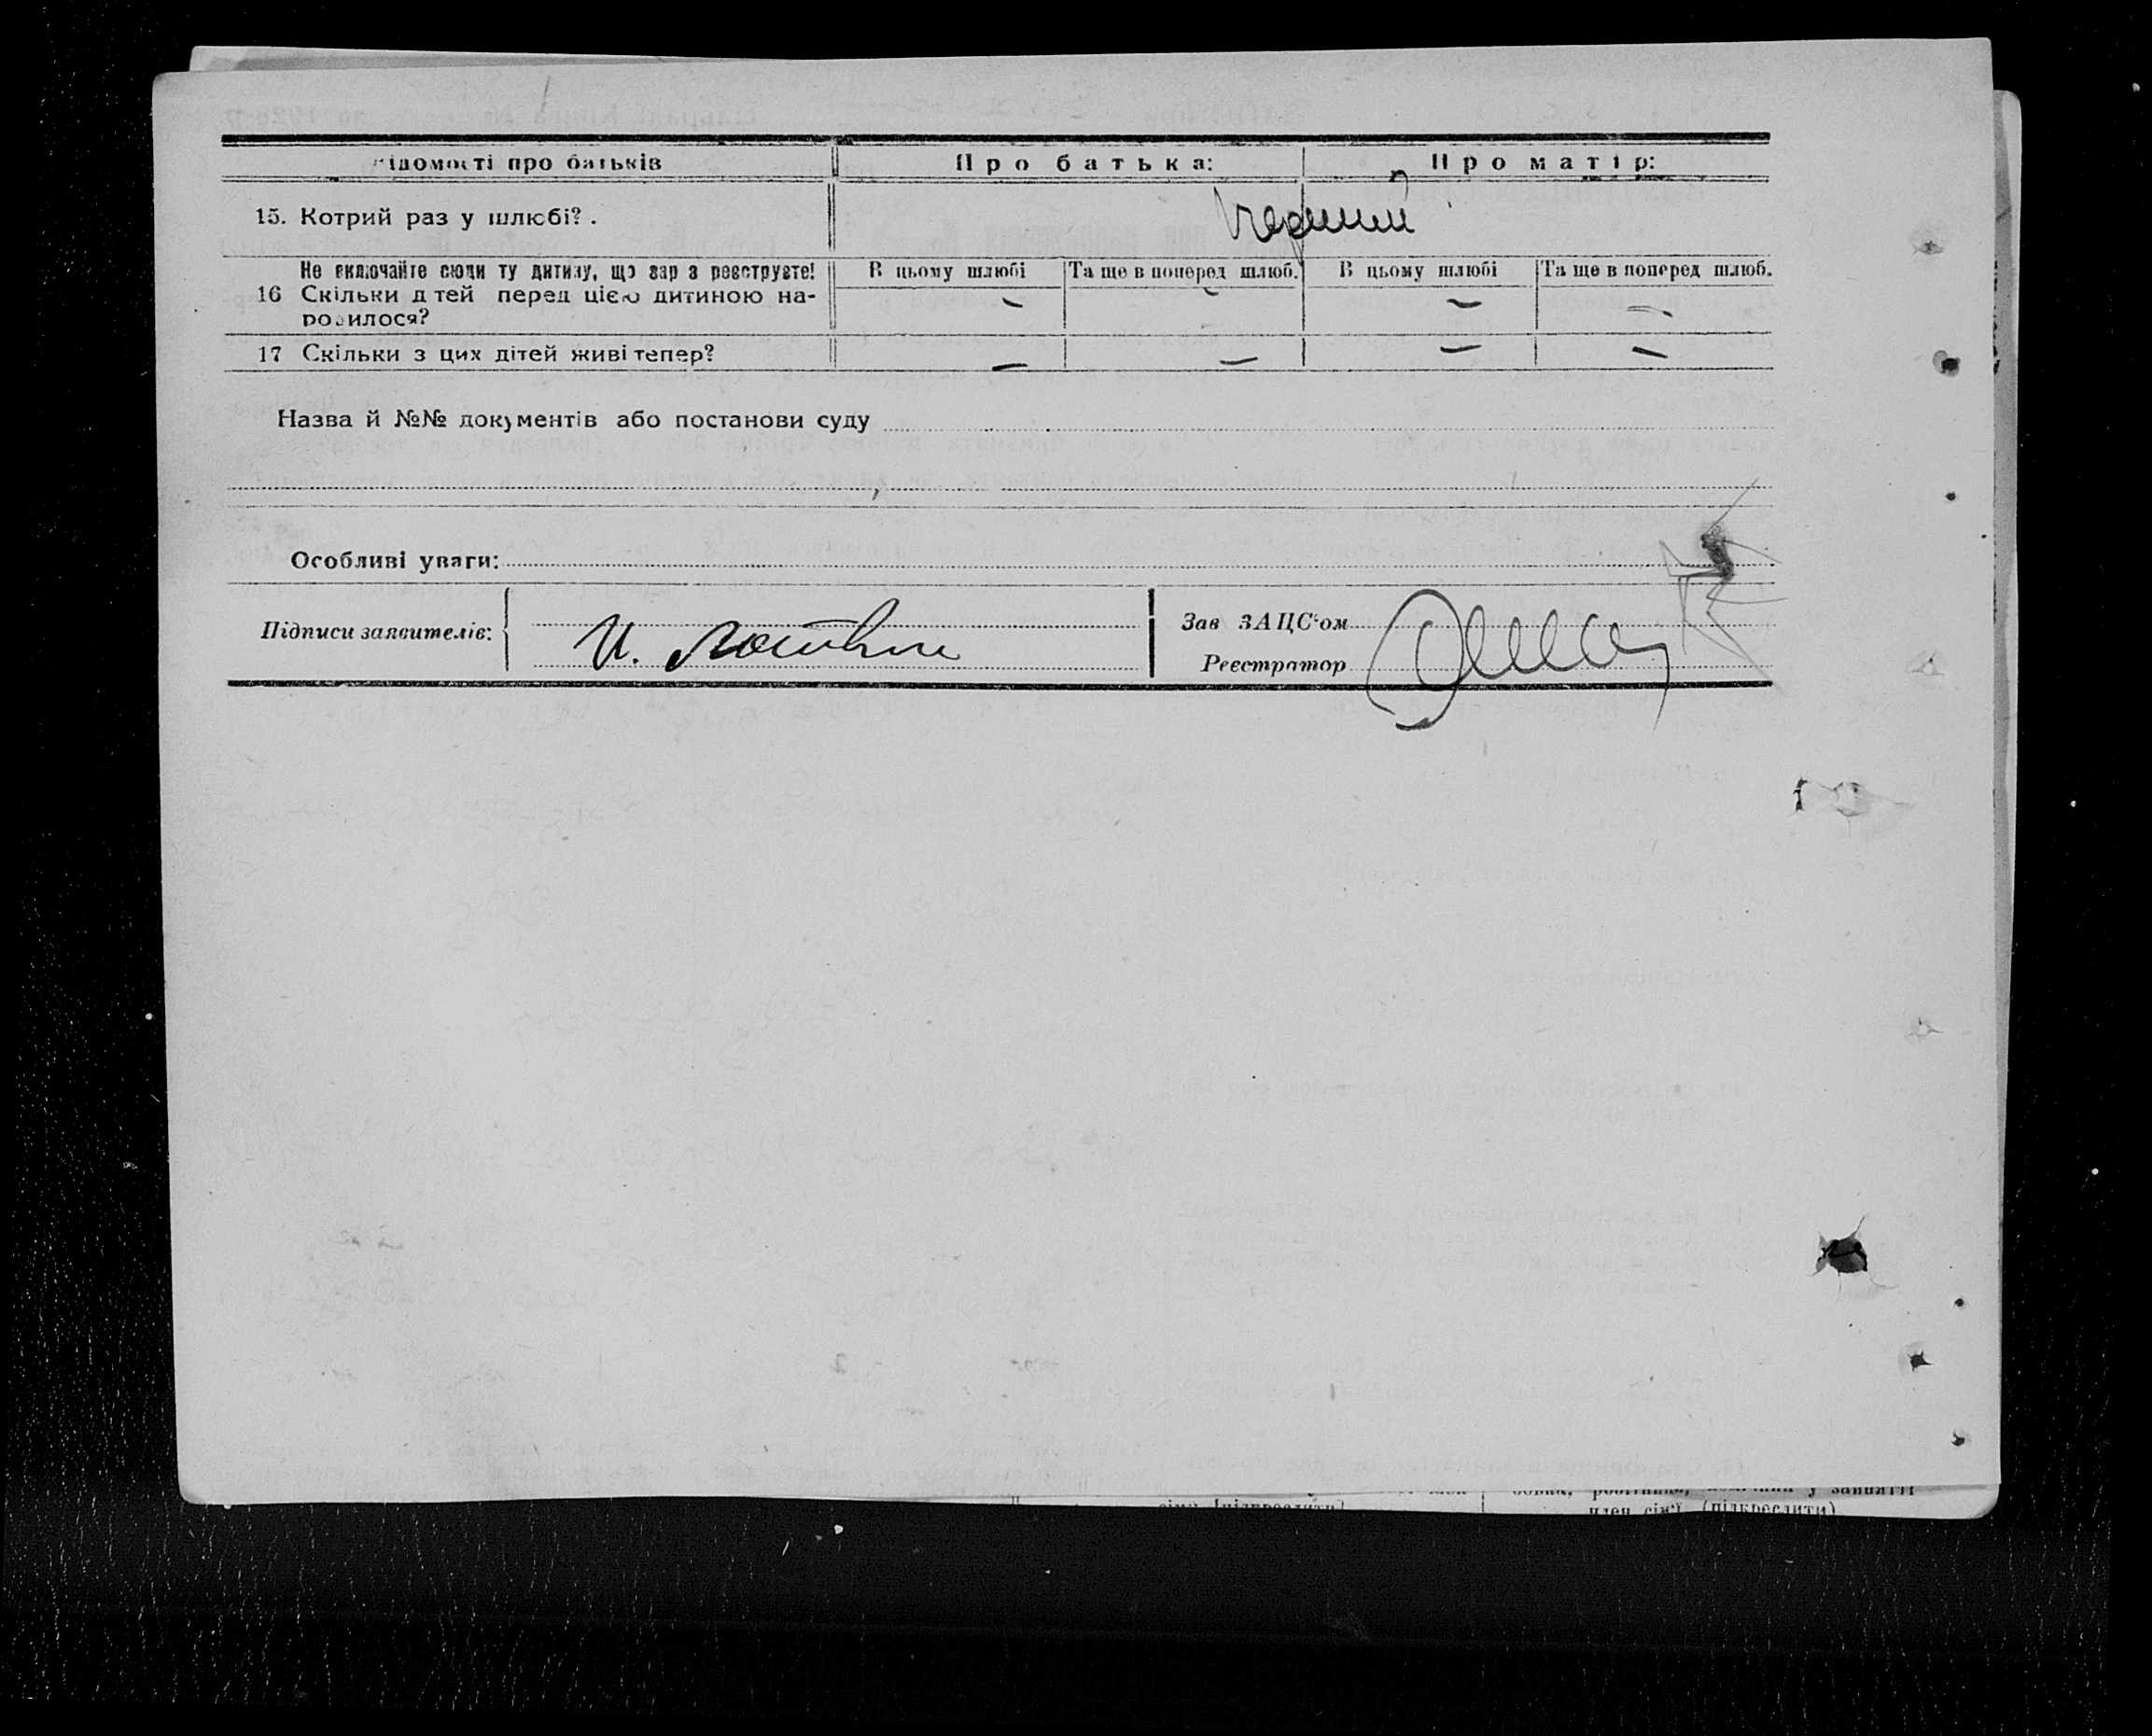 ідомості про батьків Про батька: Про матір:
15. Котрий раз у шлюбі?. перший
Не включайте сюди ту дитину, що зараз реєструєте! В цьому шлюбі Та ще в поперед шлюб. В цьому шлюбі Та ще в поперед шлюб.
16 Скільки дітей перед цією дитиною на-
родилося? — — — —
17 Скільки з цих дітей живі тепер? — — — —
Назва й №№ документів або постанови суду
Особливі уваги:
Підписи заявителів: И. Зав ЗАЦС'ом
Реєстратор
сім'ї [підкреслити] у занятті
член сім'ї (підкреслити)